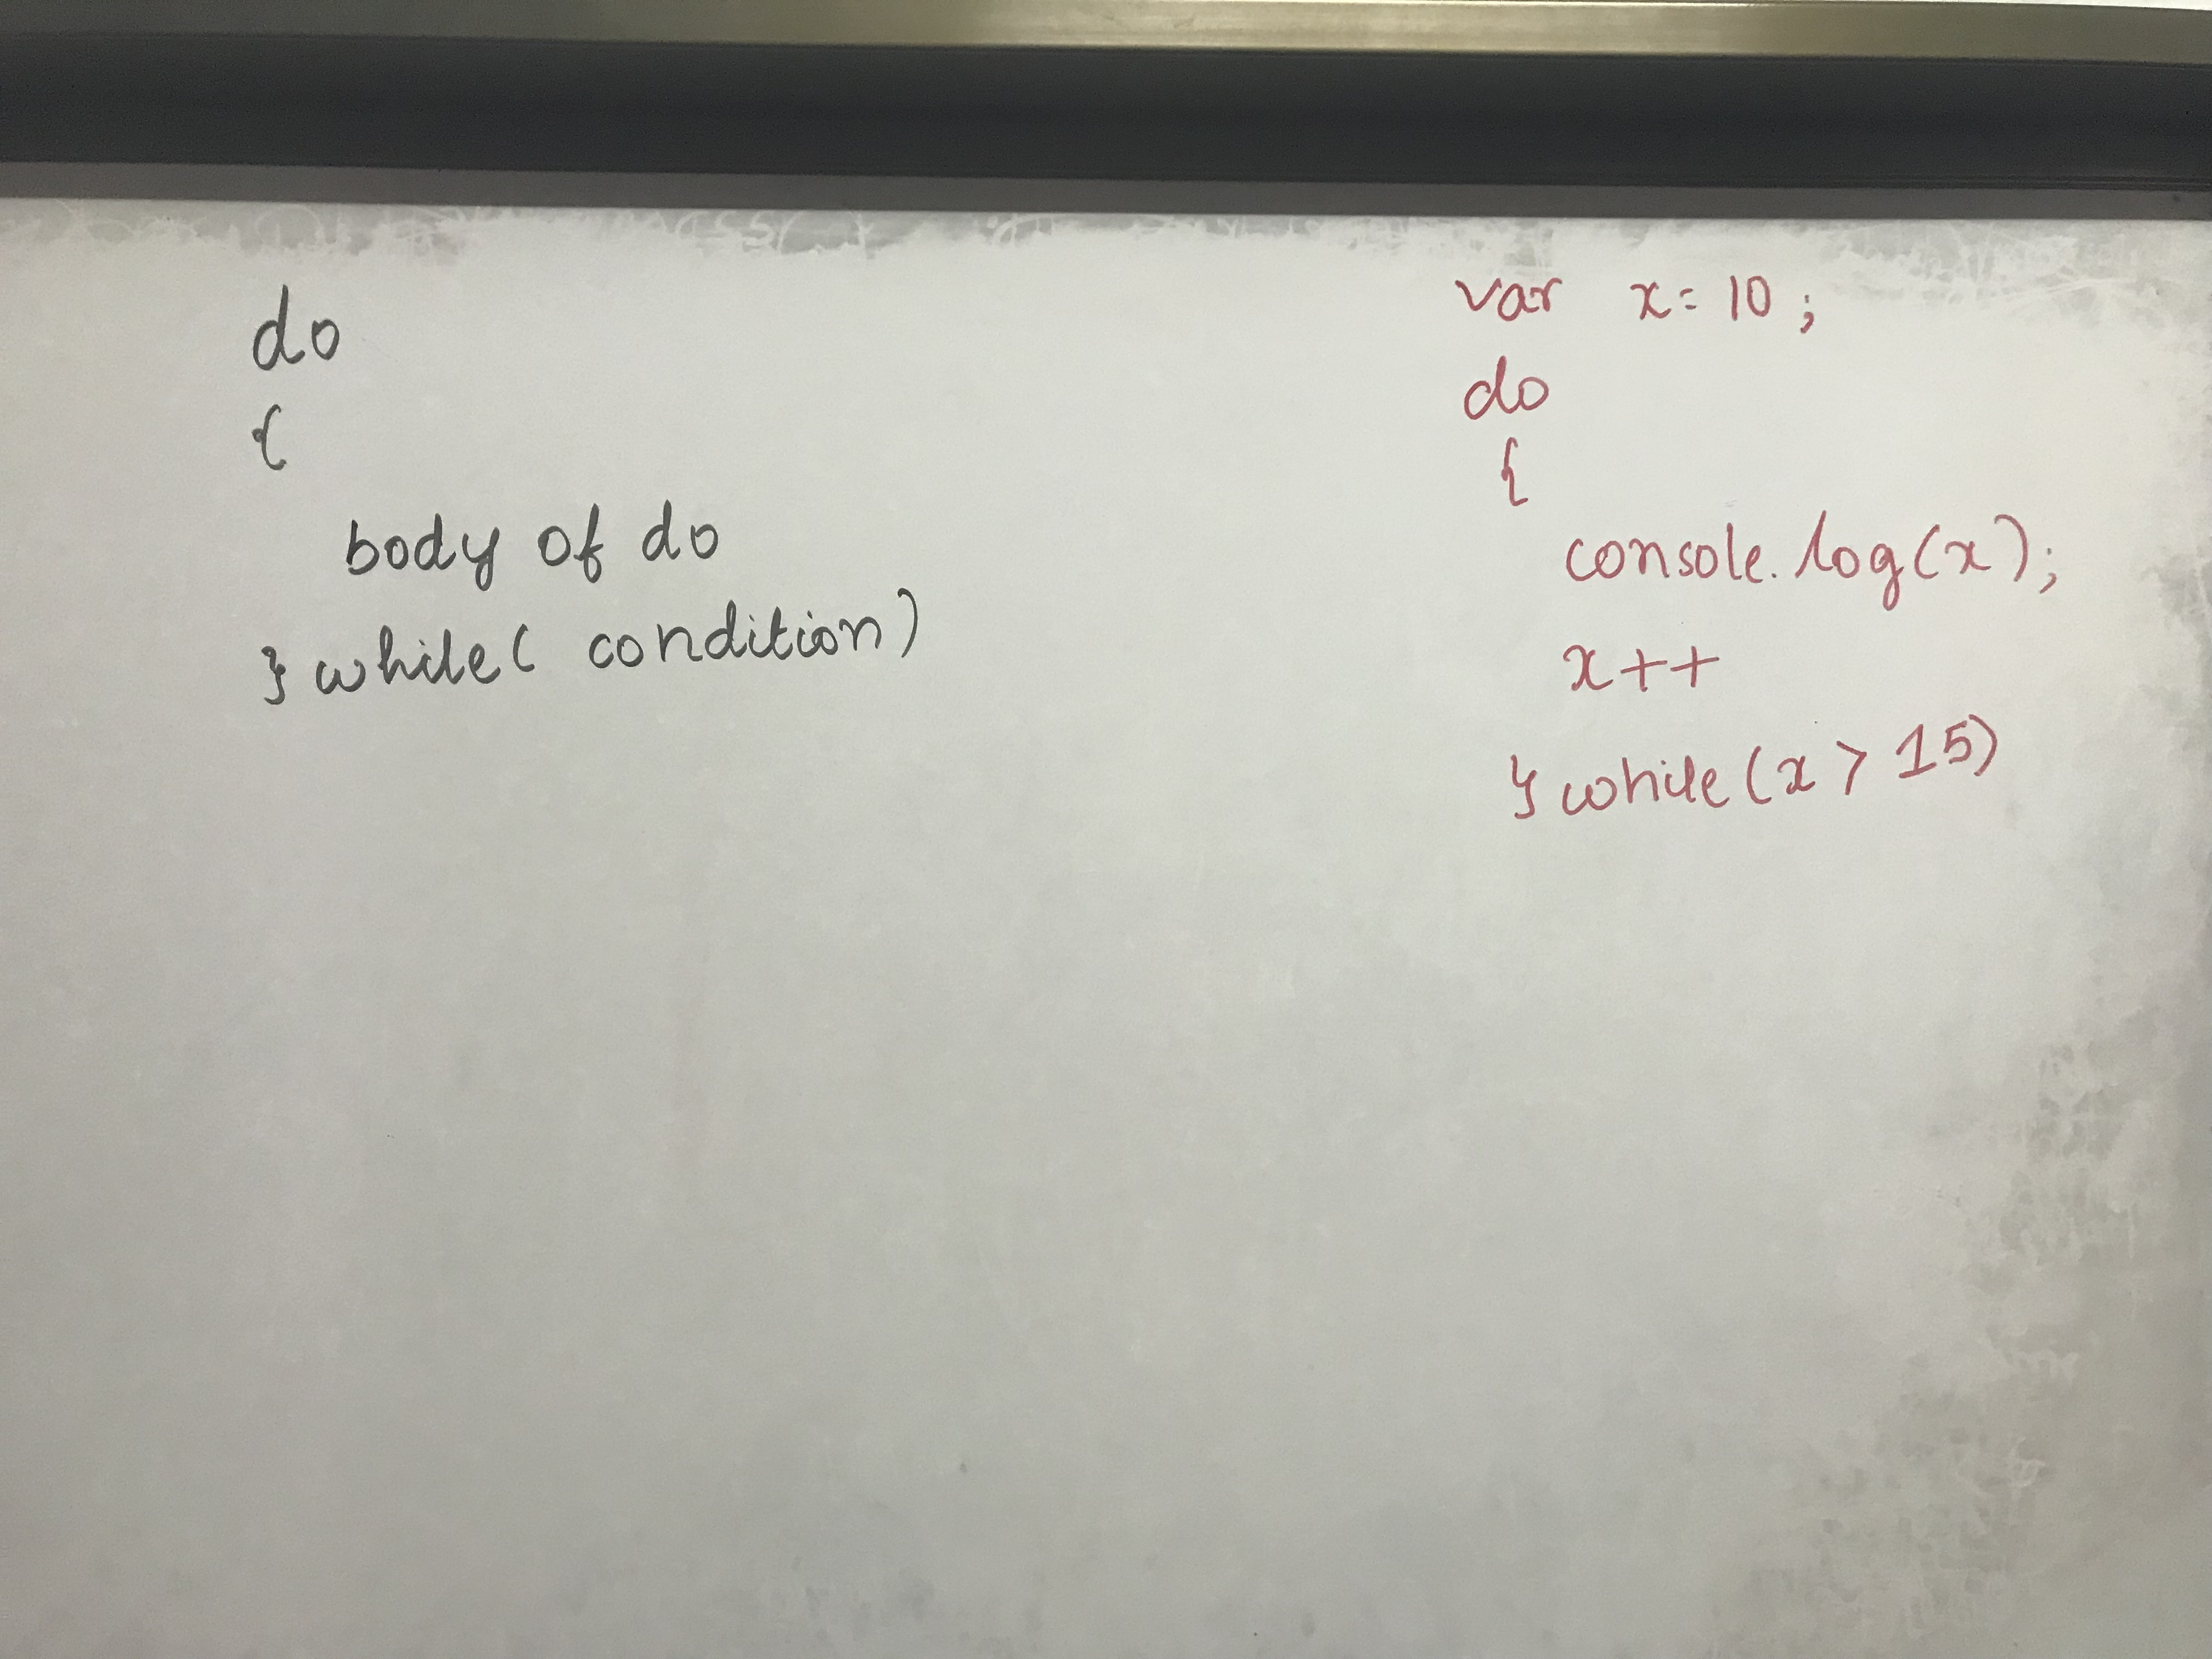 do
{
body of do
} while( condition)
var x= 10 ;
do
{
console.log(x);
x++
} while(x > 15)